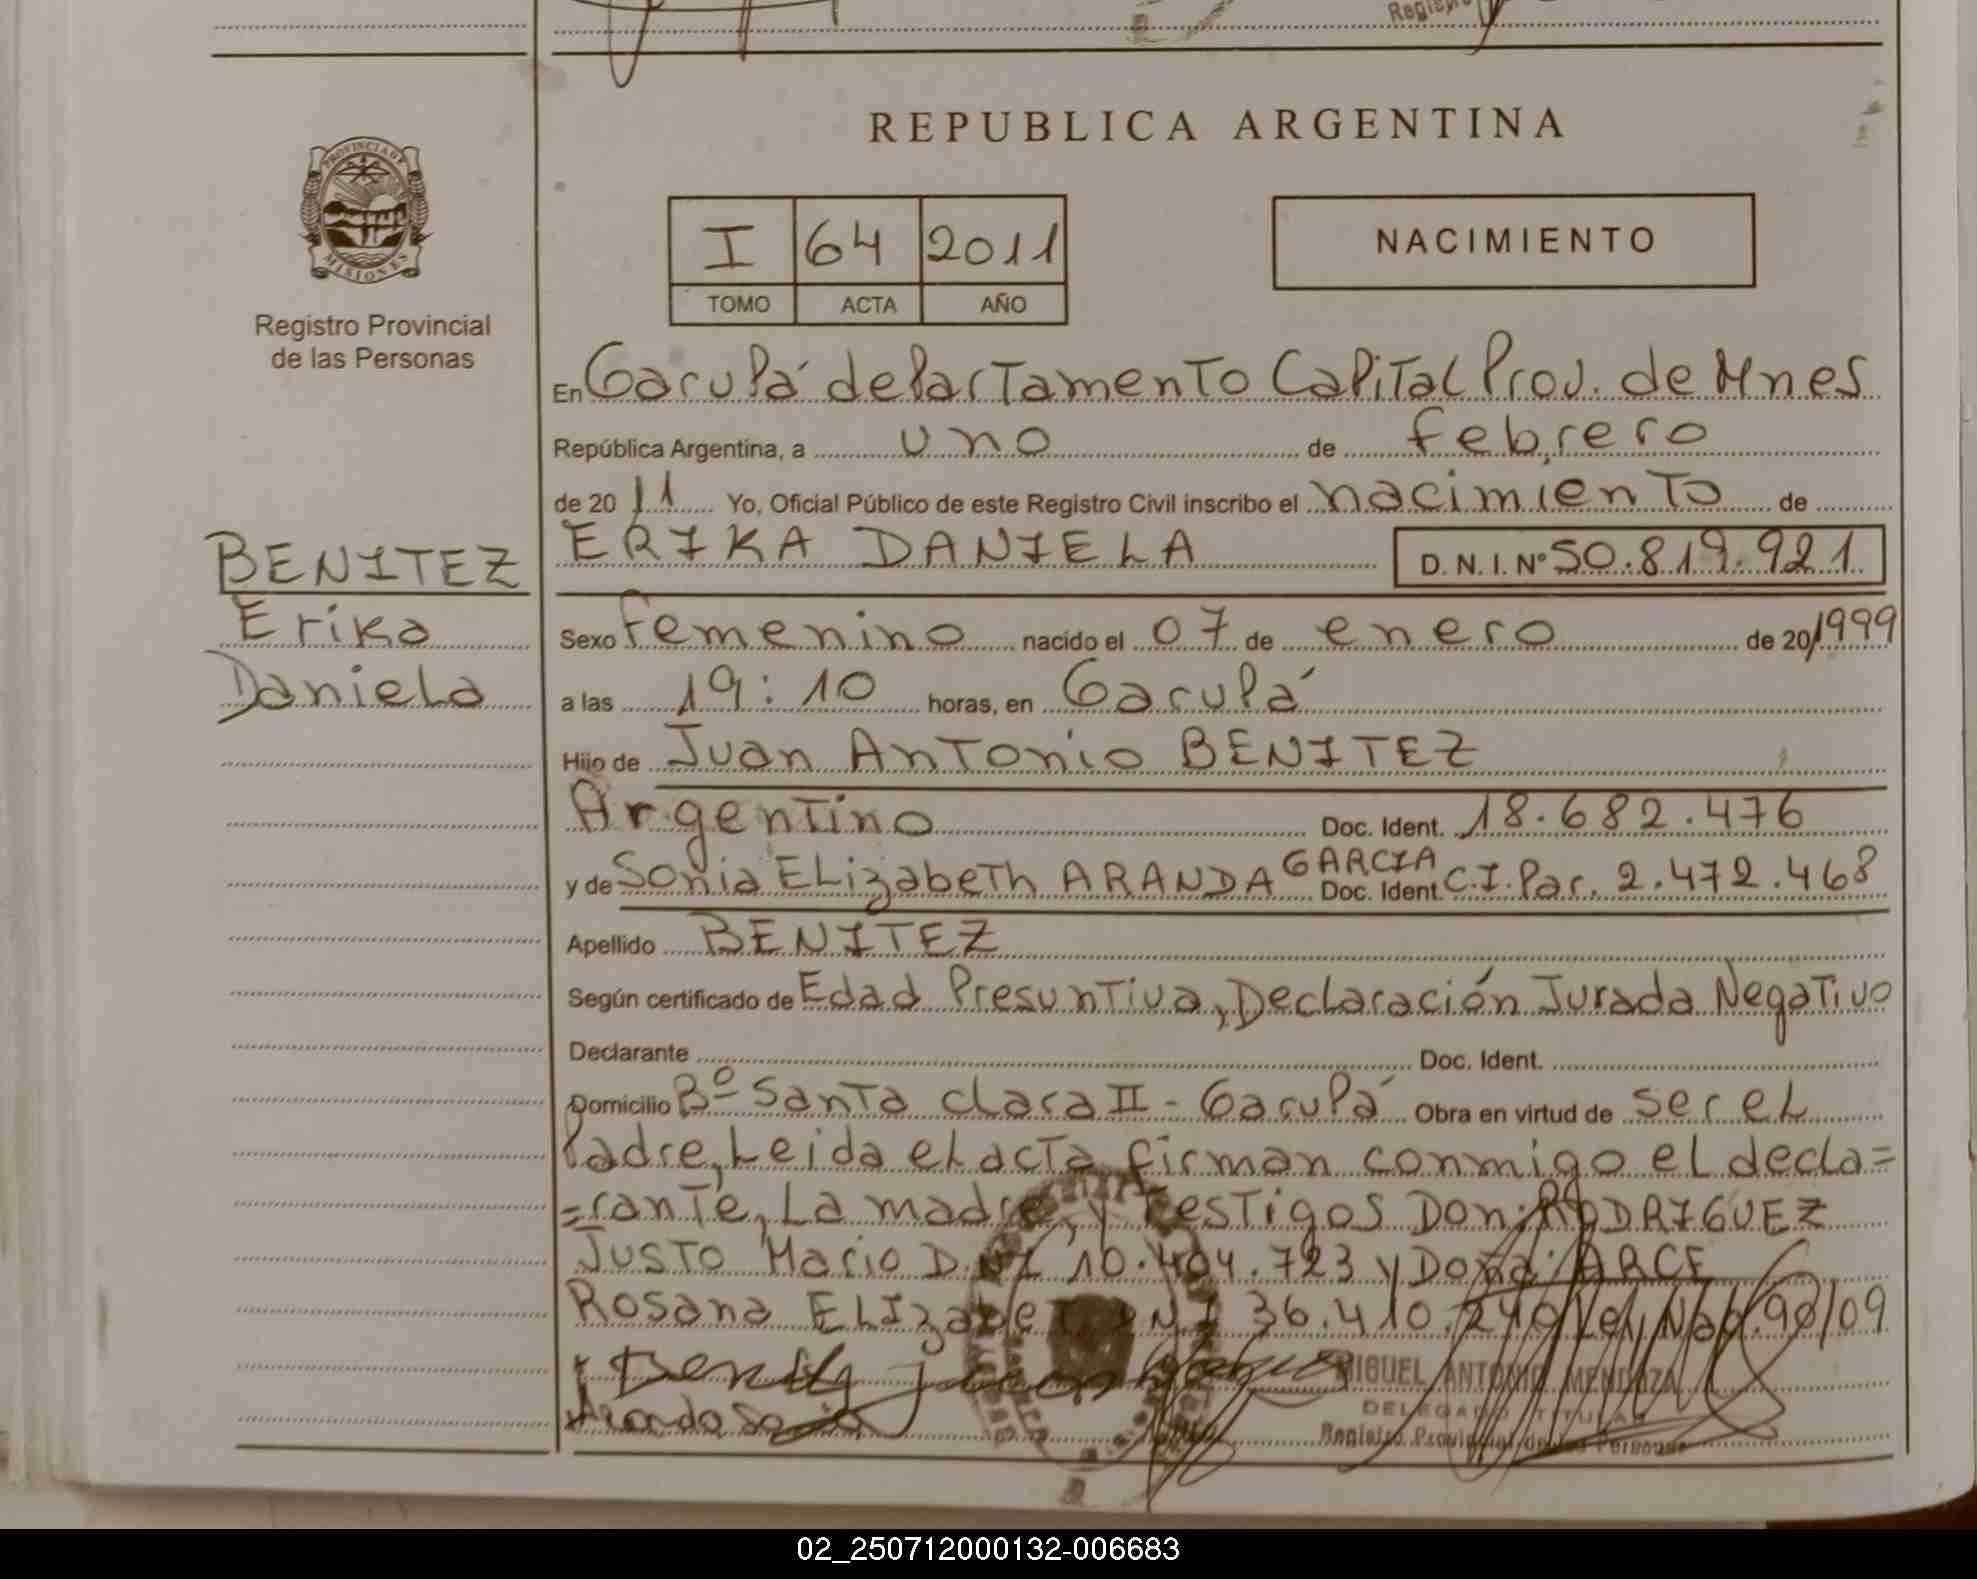 Registro
REPUBLICA ARGENTINA
PROVINCIA DE
MISIONES
Registro Provincial
de las Personas
I 64 2011
TOMO ACTA AÑO
NACIMIENTO
En Garupá departamento Capital Prov. de Mnes
República Argentina, a uno de febrero
de 2011 Yo, Oficial Público de este Registro Civil inscribo el nacimiento de
BENITEZ
Erika
Daniela
ERIKA DANIELA D.N.I. Nº 50.819.921
Sexo femenino nacido el 07 de enero de 20/1999
a las 19:10 horas, en Garupá
Hijo de Juan Antonio BENITEZ
Argentino Doc. Ident. 18.682.476
y de Sonia Elizabeth ARANDA GARCIA Doc. Ident. C.I. Par. 2.472.468
Apellido BENITEZ
Según certificado de Edad Presuntiva, Declaración Jurada Negativo
Declarante Doc. Ident.
Domicilio Bº Santa Clara II - Garupá Obra en virtud de ser el
Padre, Leida el acta firman conmigo el decla=
=rante, La madre, y Testigos Don: RODRIGUEZ
Justo Mario D.N.I 10.404.723 y Doña: ARCE
Rosana Elizabet DNI 36.410.240 Ley Nac. 90/09
Benitez Juan
Aranda Sonia
MIGUEL ANTONIO MENDOZA
DELEGADO TITULAR
Registro Provincial de las Personas
02_250712000132-006683